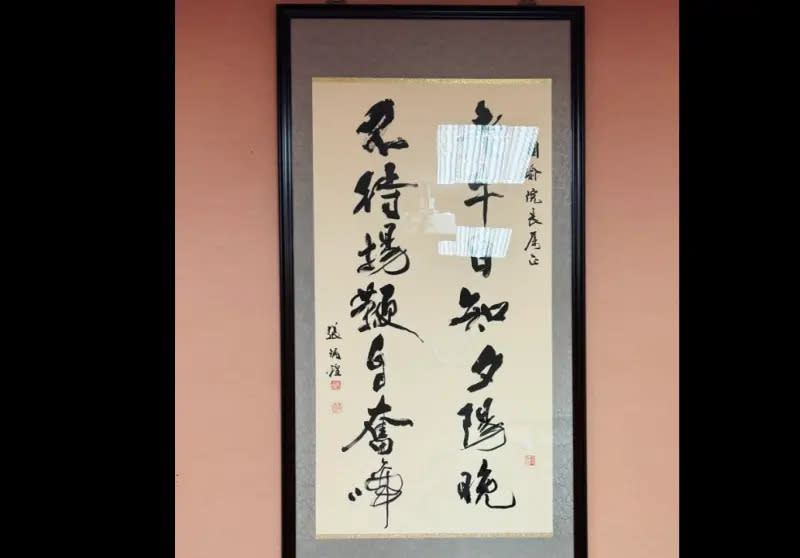 院長屬正
老牛自知夕陽晚
不待揚鞭自奮蹄
張炳煌